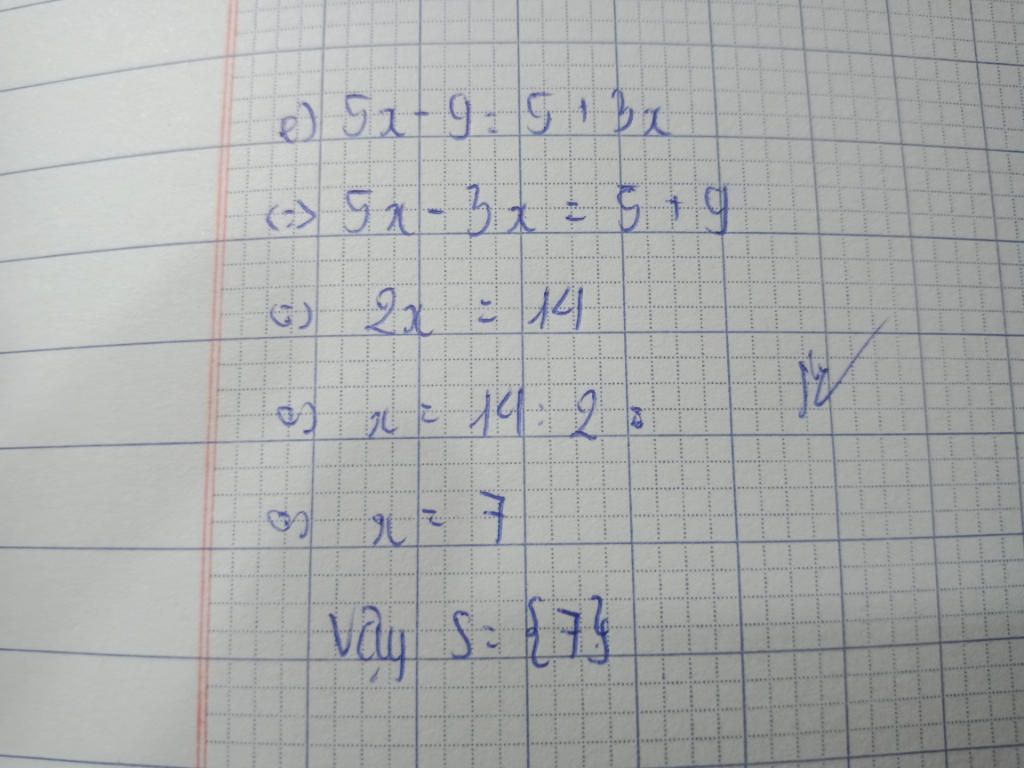 e) 5x - 9 = 5 + 3x
<=> 5x - 3x = 5 + 9
<=> 2x = 14
<=> x = 14 : 2
<=> x = 7
Vậy S = {7}